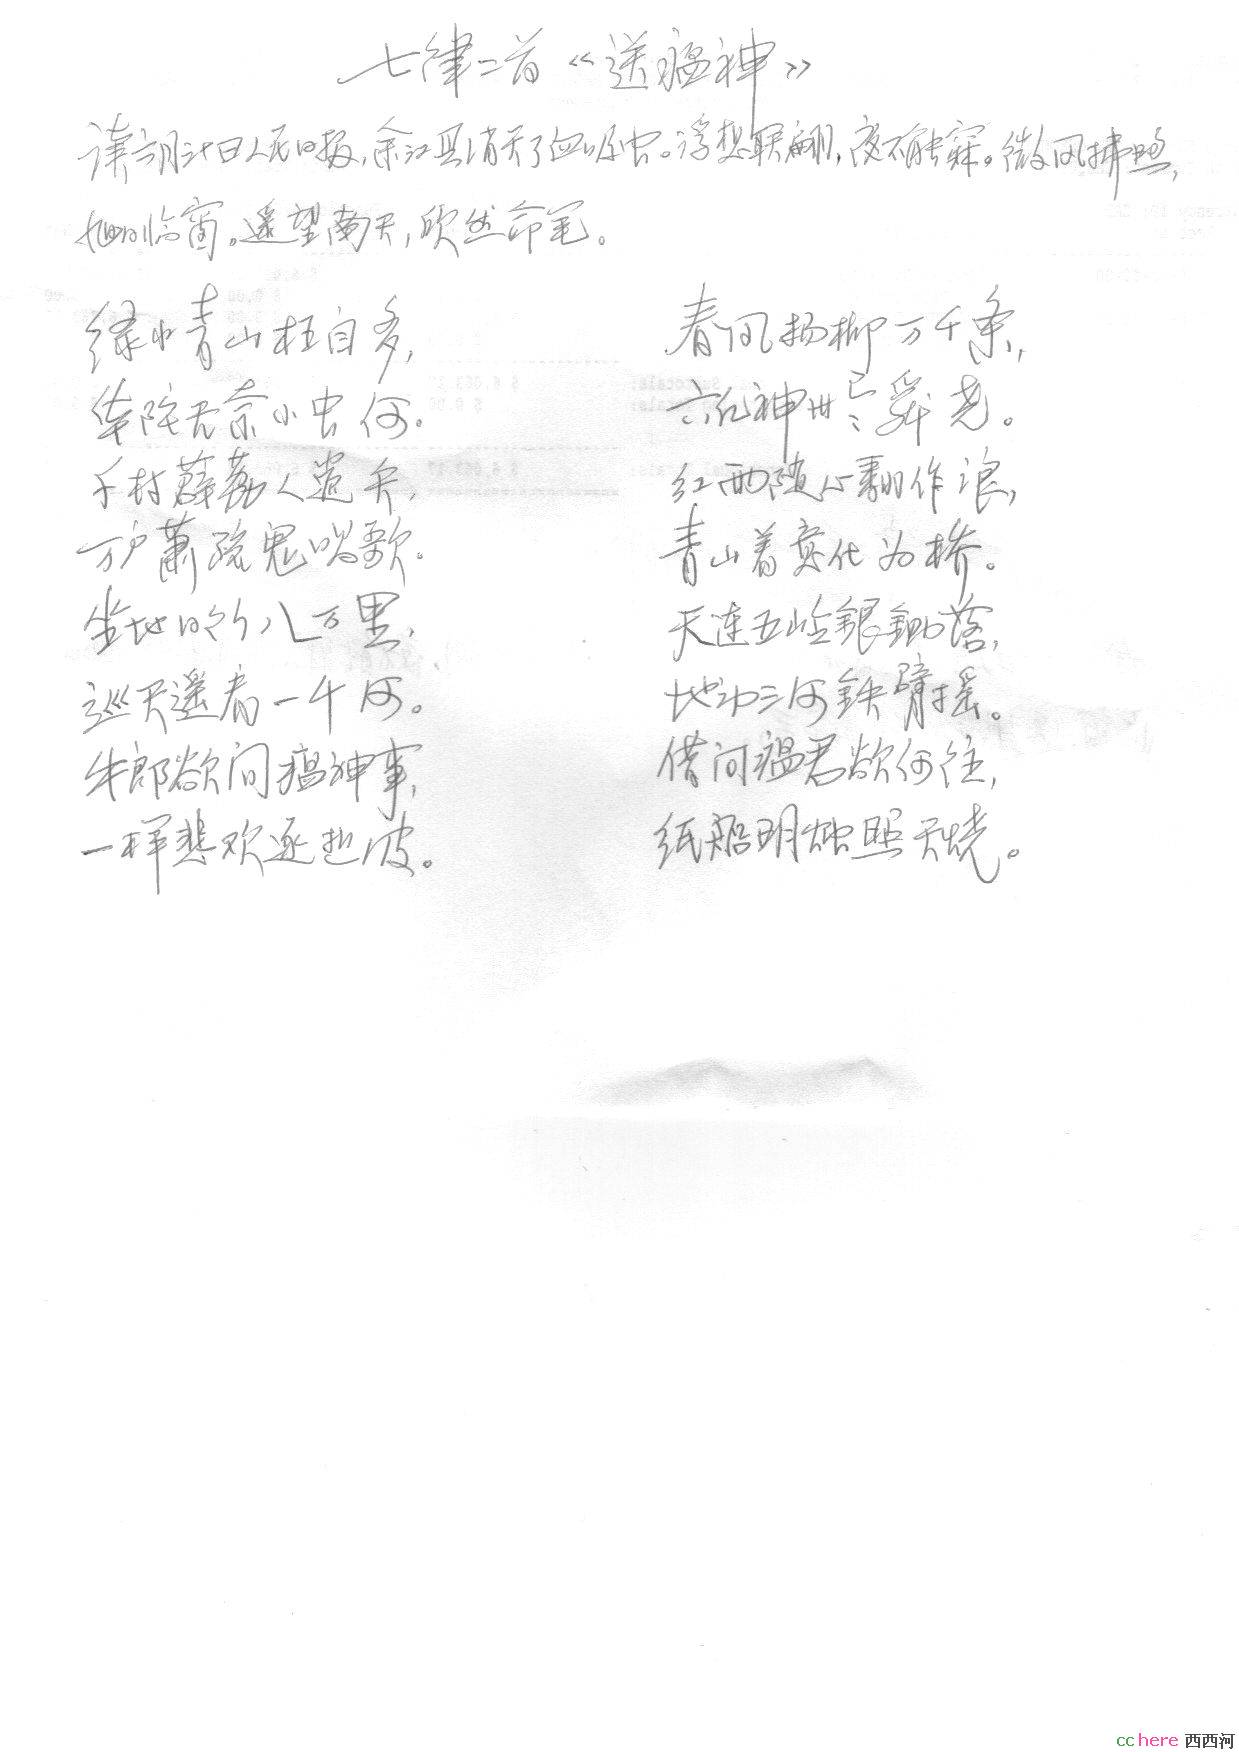 七律二首《送瘟神》
读六月三十日人民日报，余江县消灭了血吸虫。浮想联翩，夜不能寐。微风拂煦，
旭日临窗。遥望南天，欣然命笔。
绿水青山枉自多，
华陀无奈小虫何。
千村薜荔人遗矢，
万户萧疏鬼唱歌。
坐地日行八万里，
巡天遥看一千河。
牛郎欲问瘟神事，
一样悲欢逐逝波。
春风杨柳万千条，
六亿神州尽舜尧。
红雨随心翻作浪，
青山着意化为桥。
天连五岭銀鋤落，
地动三河鉄臂摇。
借问瘟君欲何往，
纸船明烛照天烧。
cchere 西西河